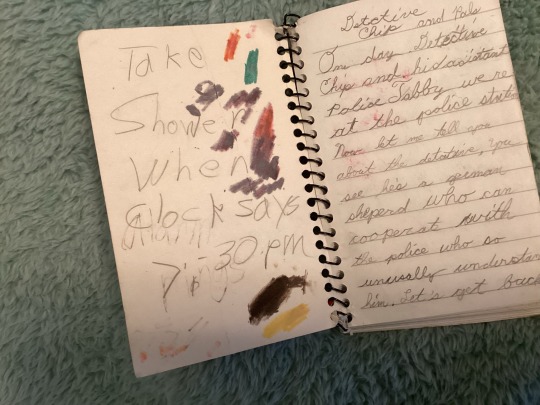 Take
Shower
When
Clock says
7:30 pm
Detective
Chip and Pals
One day Detective
Chip and his assistant
Police Tabby were
at the police
Now let me tell you
about the detective, you
see he's a german
sheperd who can
cooperat with
the police who so
unually understan
him. Let's get back